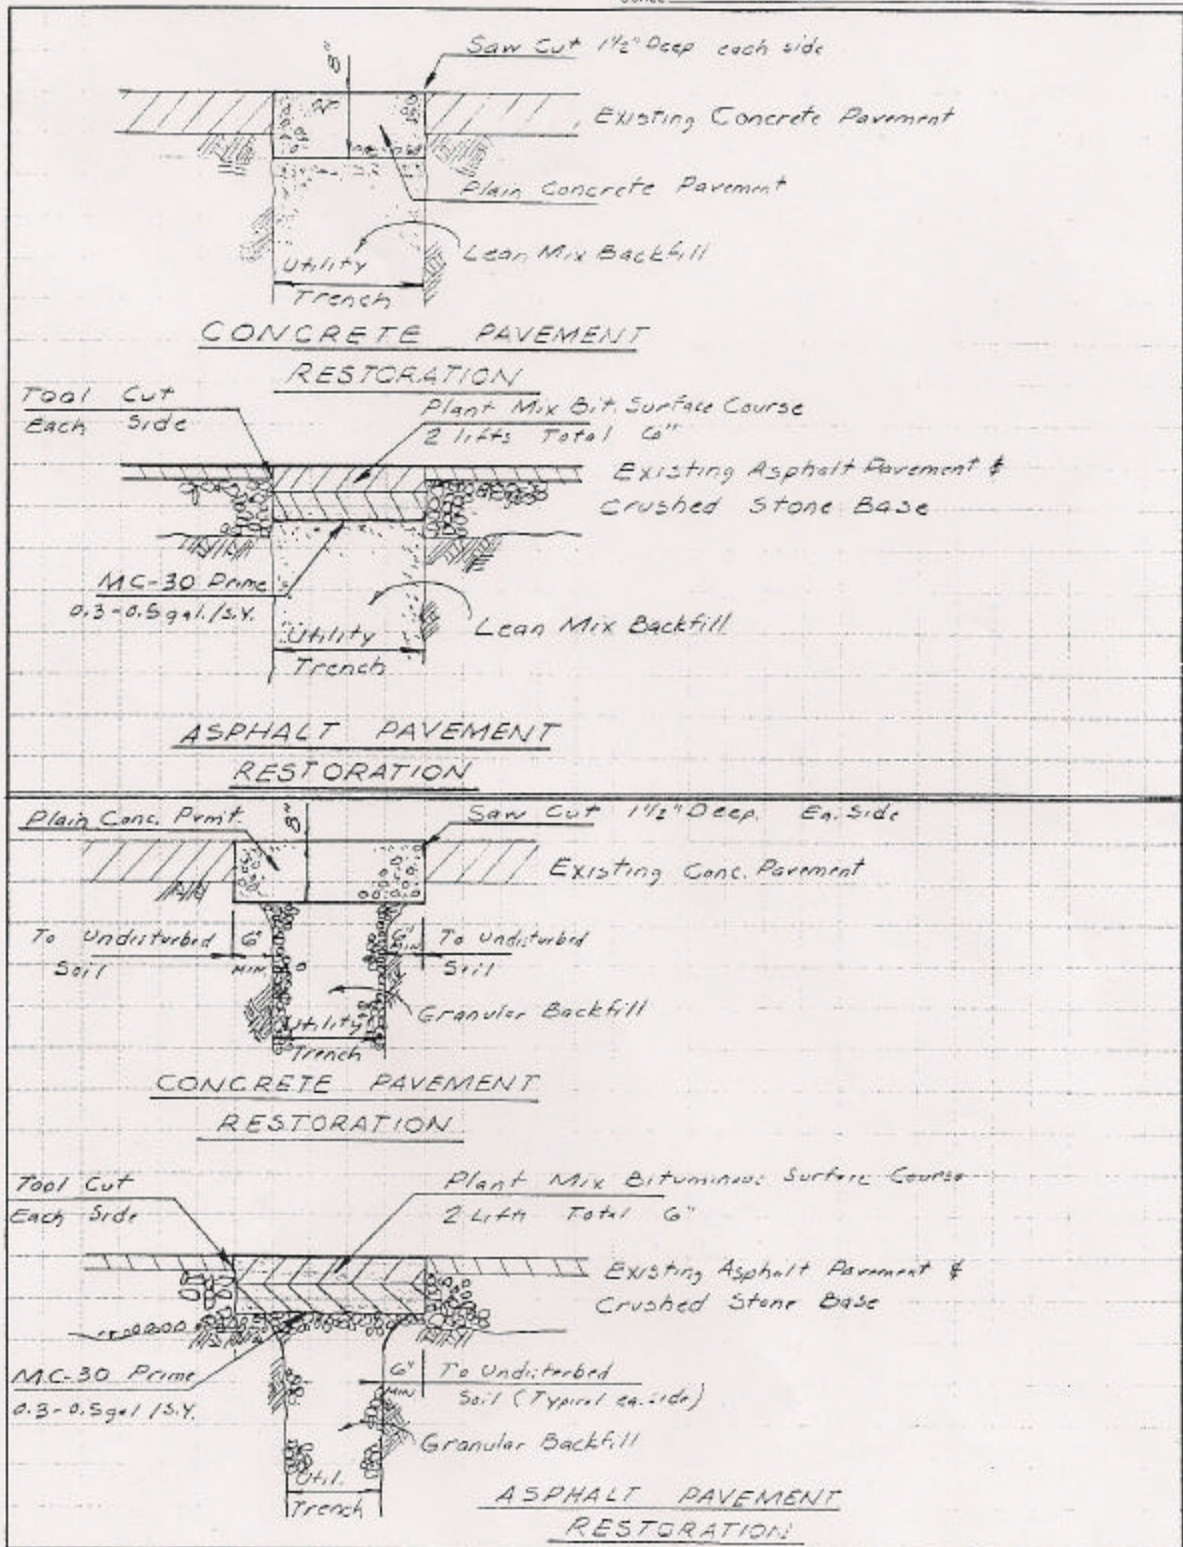 Scale
Saw Cut 1½" Deep each side
8"
Existing Concrete Pavement
Plain Concrete Pavement
Lean Mix Backfill
Utility
Trench
CONCRETE PAVEMENT
RESTORATION
Tool Cut
Each Side
Plant Mix Bit. Surface Course
2 lifts Total 6"
Existing Asphalt Pavement &
Crushed Stone Base
MC-30 Prime
0.3-0.5 gal./S.Y.
Lean Mix Backfill
Utility
Trench
ASPHALT PAVEMENT
RESTORATION
Plain Conc. Pvmt.
8"
Saw Cut 1½" Deep. Ea. Side
Existing Conc. Pavement
To Undisturbed
Soil
6"
MIN.
6"
MIN
To Undisturbed
Soil
Granular Backfill
Utility
Trench
CONCRETE PAVEMENT
RESTORATION
Tool Cut
Each Side
Plant Mix Bituminous Surface Course
2 Lifts Total 6"
Existing Asphalt Pavement &
Crushed Stone Base
MC-30 Prime
0.3-0.5 gal /S.Y.
6"
MIN
To Undisturbed
Soil (Typical ea. side)
Granular Backfill
Util.
Trench
ASPHALT PAVEMENT
RESTORATION